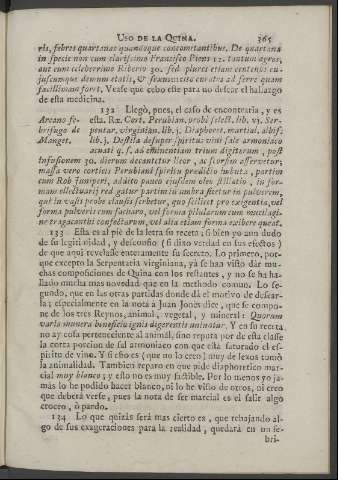 USO DE LA QUINA. 365
ris, febres quartanas quandoque concomitantibus. De quartana
in specie non cum clarissimo Francisco Piens 12. tantum agros,
aut cum celeberrimo Riberio 30. sed plures etiam centenos cu-
juscumque demum ætatis, & sexuum cito curatos ad ferre quam
facillimum foret. Vease què cebo este para no desear el hallazgo
de esta medicina.
132 Llegò, pues, el caso de encontraria, y es
Arcano fe-
brifugo de
Manget.
esta. Ræ. Cort. Perubian. probè select. lib. vj. Ser-
pentar. virginian. lib. j. Diaphoret. martial. albis.
lib. j. Destila desuper spiritus vini sale armoniaco
acuati q. s. ad eminentiam trium digitorum, post
infusionem 30. dierum decantetur licor, ac seorsim asservetur;
massa vero corticis Perubiani spiritu prædicto imbuta, partim
cum Rob Juniperi, addito pauco ejusdem oleo stillatio, in for-
mam ellectuarij red gatur partim in umbra siccetur in pulverem,
qui in vasis probe clausis servetur, quo scilicet pro exigentia, vel
forma pulveris cum saccaro, vel forma pilularum cum mucilagi-
ne tragacanthi confectarum, vel alia etiam forma exibere queat.
133 Esta es al piè de la letra su receta; si bien yo aun dudo
de su legitimidad, y desconfio (si dixo verdad en sus efectos)
de que aqui revelase enteramente su secreto. Lo primero, por-
que excepto la Serpentaria virginiana, yà se han visto dàr mu-
chas composiciones de Quina con los restantes, y no se ha ha-
llado mucha mas novedad que en la methodo comun. Lo se-
gundo, que en las otras partidas donde dà el motivo de desear-
la; especialmente en la nota à Juan Jones dice, que se compo-
ne de los tres Reynos, animal, vegetal, y mineral: Quorum
varia munera beneficiu ignis digerentis uniuntur. Y en su receta
no ay cosa perteneciente al animal, sino reputa por de esta clase
la corta porcion de sal armoniaco con que està saturado el es-
piritu de vino. Y si esto es (que no lo creo) muy de lexos tomò
la animalidad. Tambien reparo en que pide diaphoretico mar-
cial muy blanco; y esto no es muy factible. Por lo menos yo ja-
màs lo he podido hacer blanco, ni lo he visto de otros, ni creo
que deberà verse, pues la nota de ser marcial es el salir algo
crocero, ò pardo.
134 Lo que quizàs serà mas cierto es, que rebajando al-
go de sus exageraciones para la realidad, quedarà en un fe-
bri-